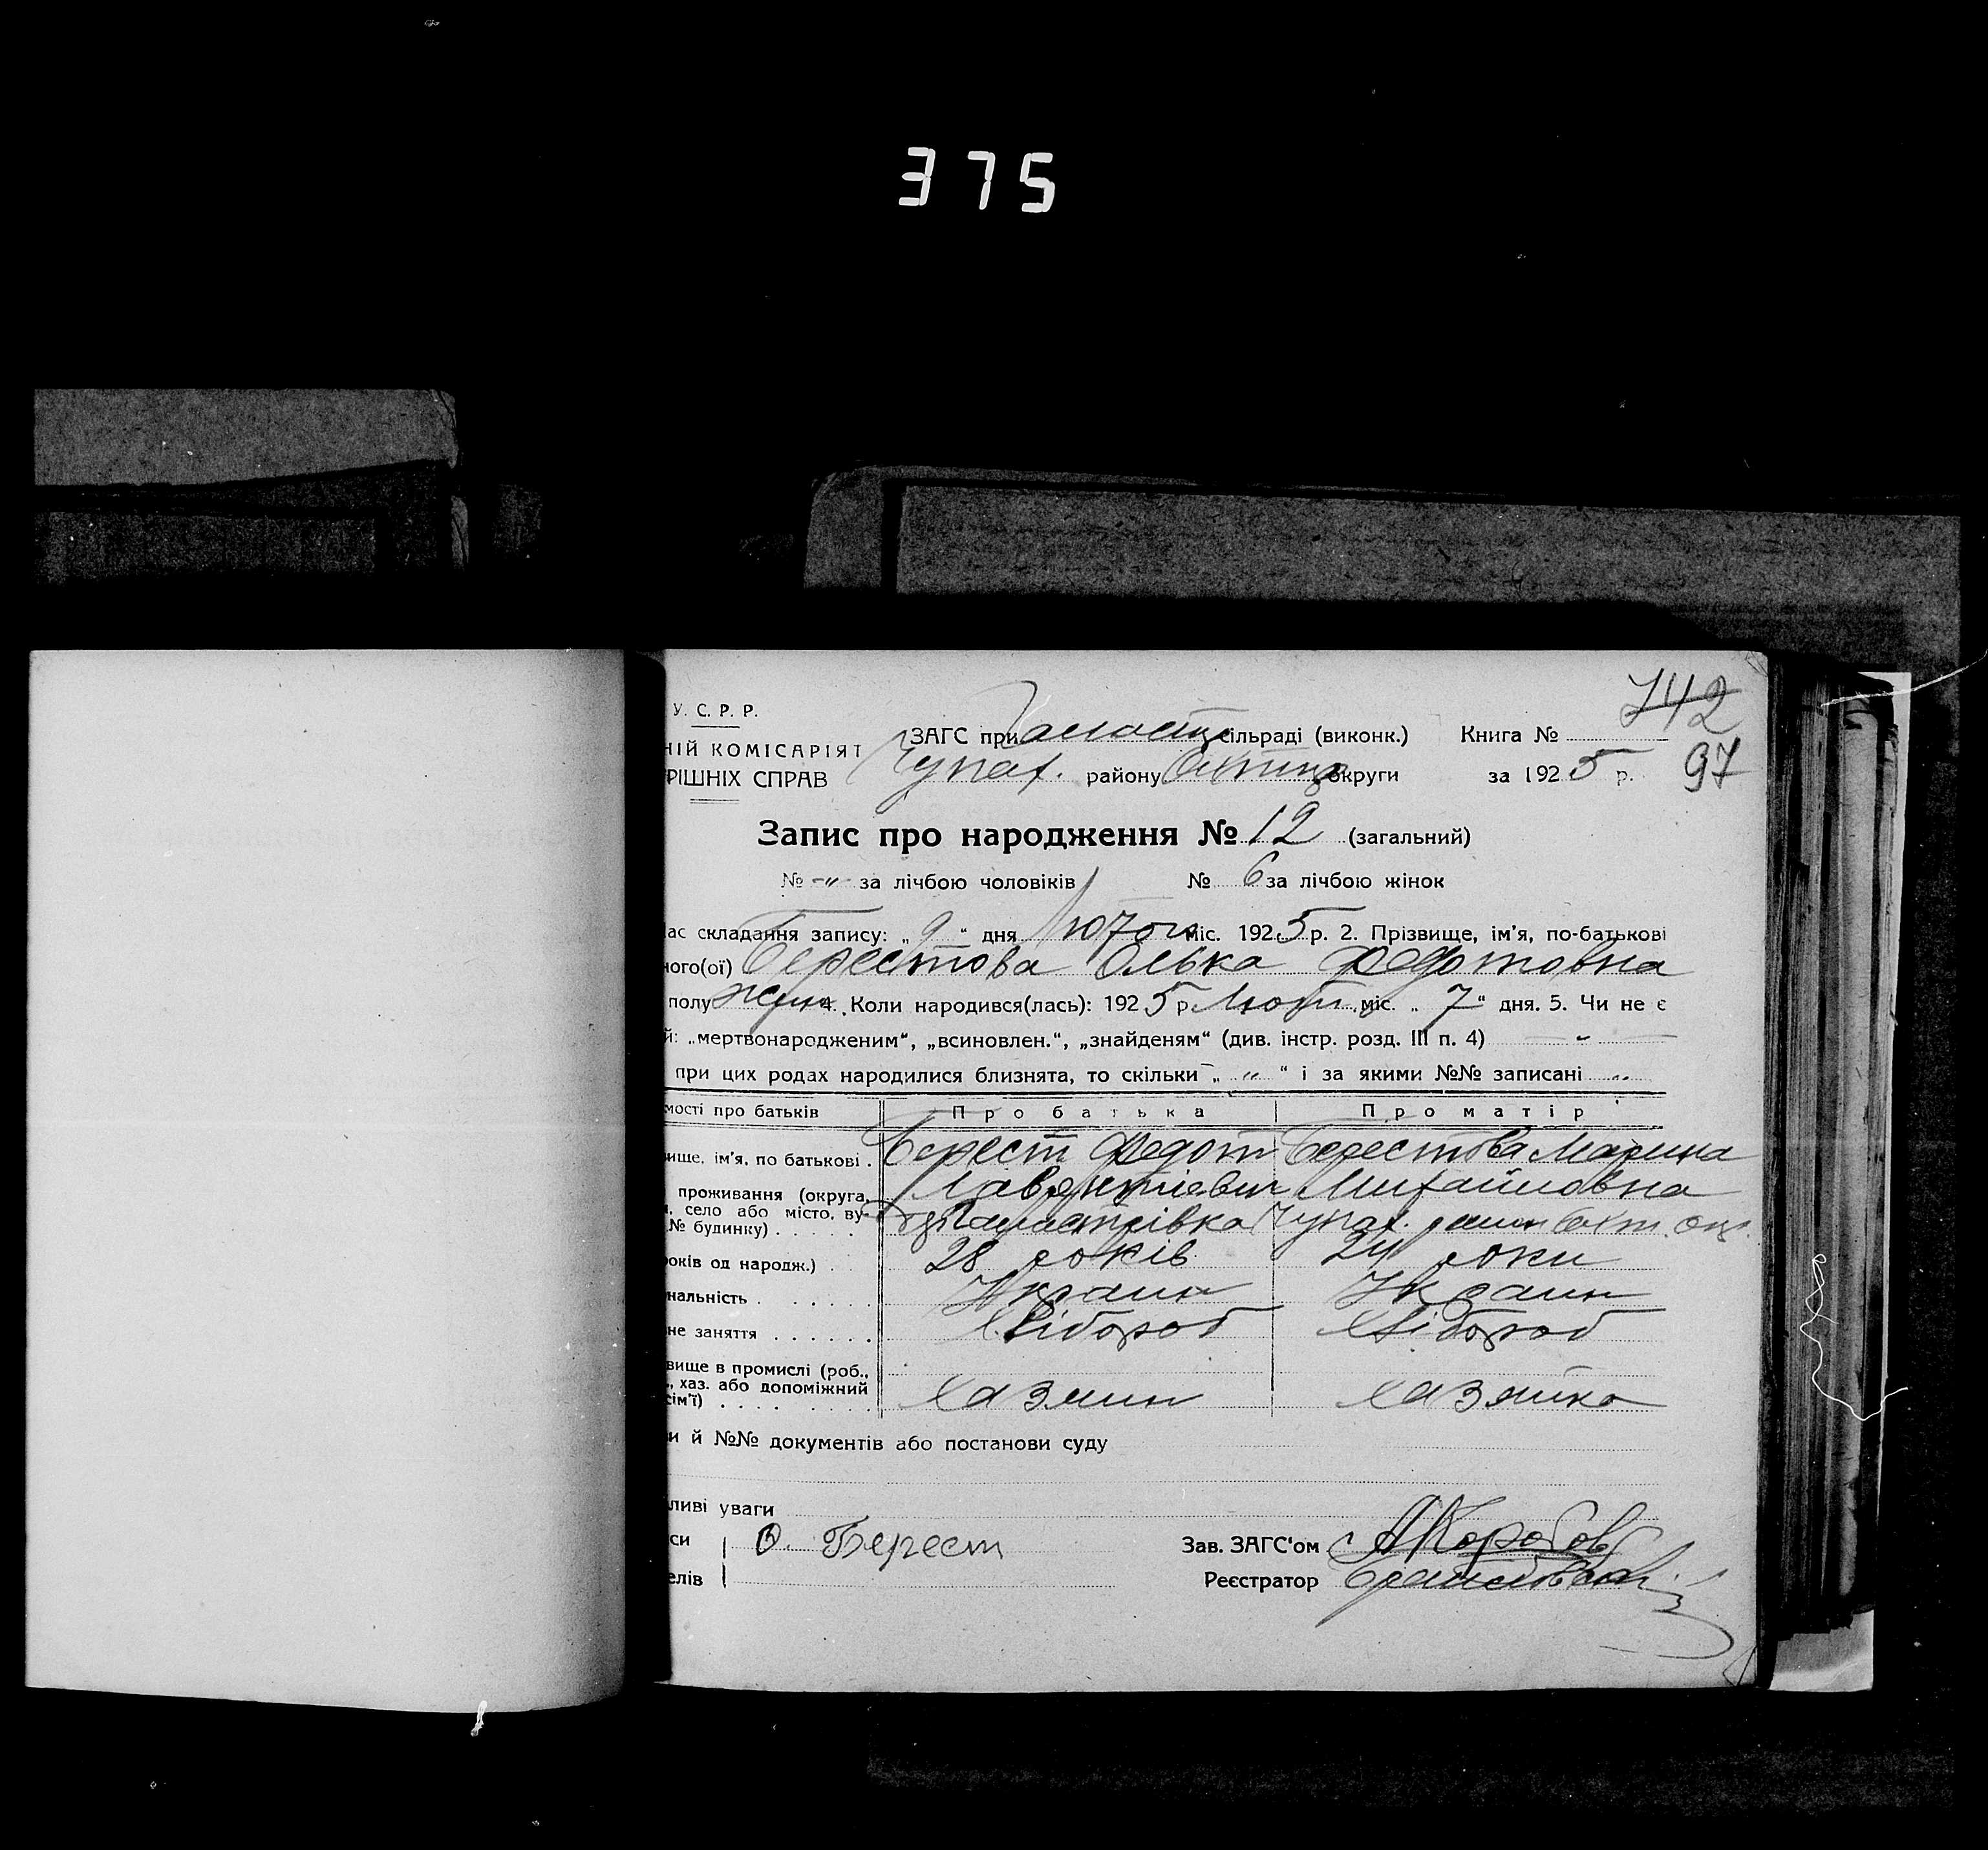 375
742
97
У. С. Р. Р.
НІЙ КОМІСАРІЯТ
РІШНІХ СПРАВ
ЗАГС при сільраді (виконк.) Книга №
Чупах. району округи за 1925 р.
Запис про народження № 12 (загальний)
№ -„- за лічбою чоловіків № 6 за лічбою жінок
ас складання запису: „9“ дня Лютого міс. 1925 р. 2. Прізвище, ім'я, по-батькові
ного(ої) Берестова Олька Федотовна
полу жін 4. Коли народився(лась): 1925 р. Лют. міс. „7“ дня. 5. Чи не є
й: „мертвонародженим“, „всиновлен.“, „знайденям“ (див. інстр. розд. III п. 4) - „ -
при цих родах народилися близнята, то скільки „ „ “ і за якими №№ записані „
мості про батьків Про батька Про матір
вище, ім'я, по батькові . Берест Федот Берестова Марина
Лаврентієвич Михайловна
проживання (округа,
н, село або місто, ву-
№ будинку) . . . . . Чупах. район
років од народж.) . . 28 років 24 роки
нальність . . . . . . Украин Украин
не заняття . . . . . . Хлібороб Хлібороб
вище в промислі (роб.,
., хаз. або допоміжний
сім'ї) . . . . . . Хазяин Хазяйка
и й №№ документів або постанови суду
ливі уваги
си Ф. Берест Зав. ЗАГС'ом АКоробов
елів Реєстратор